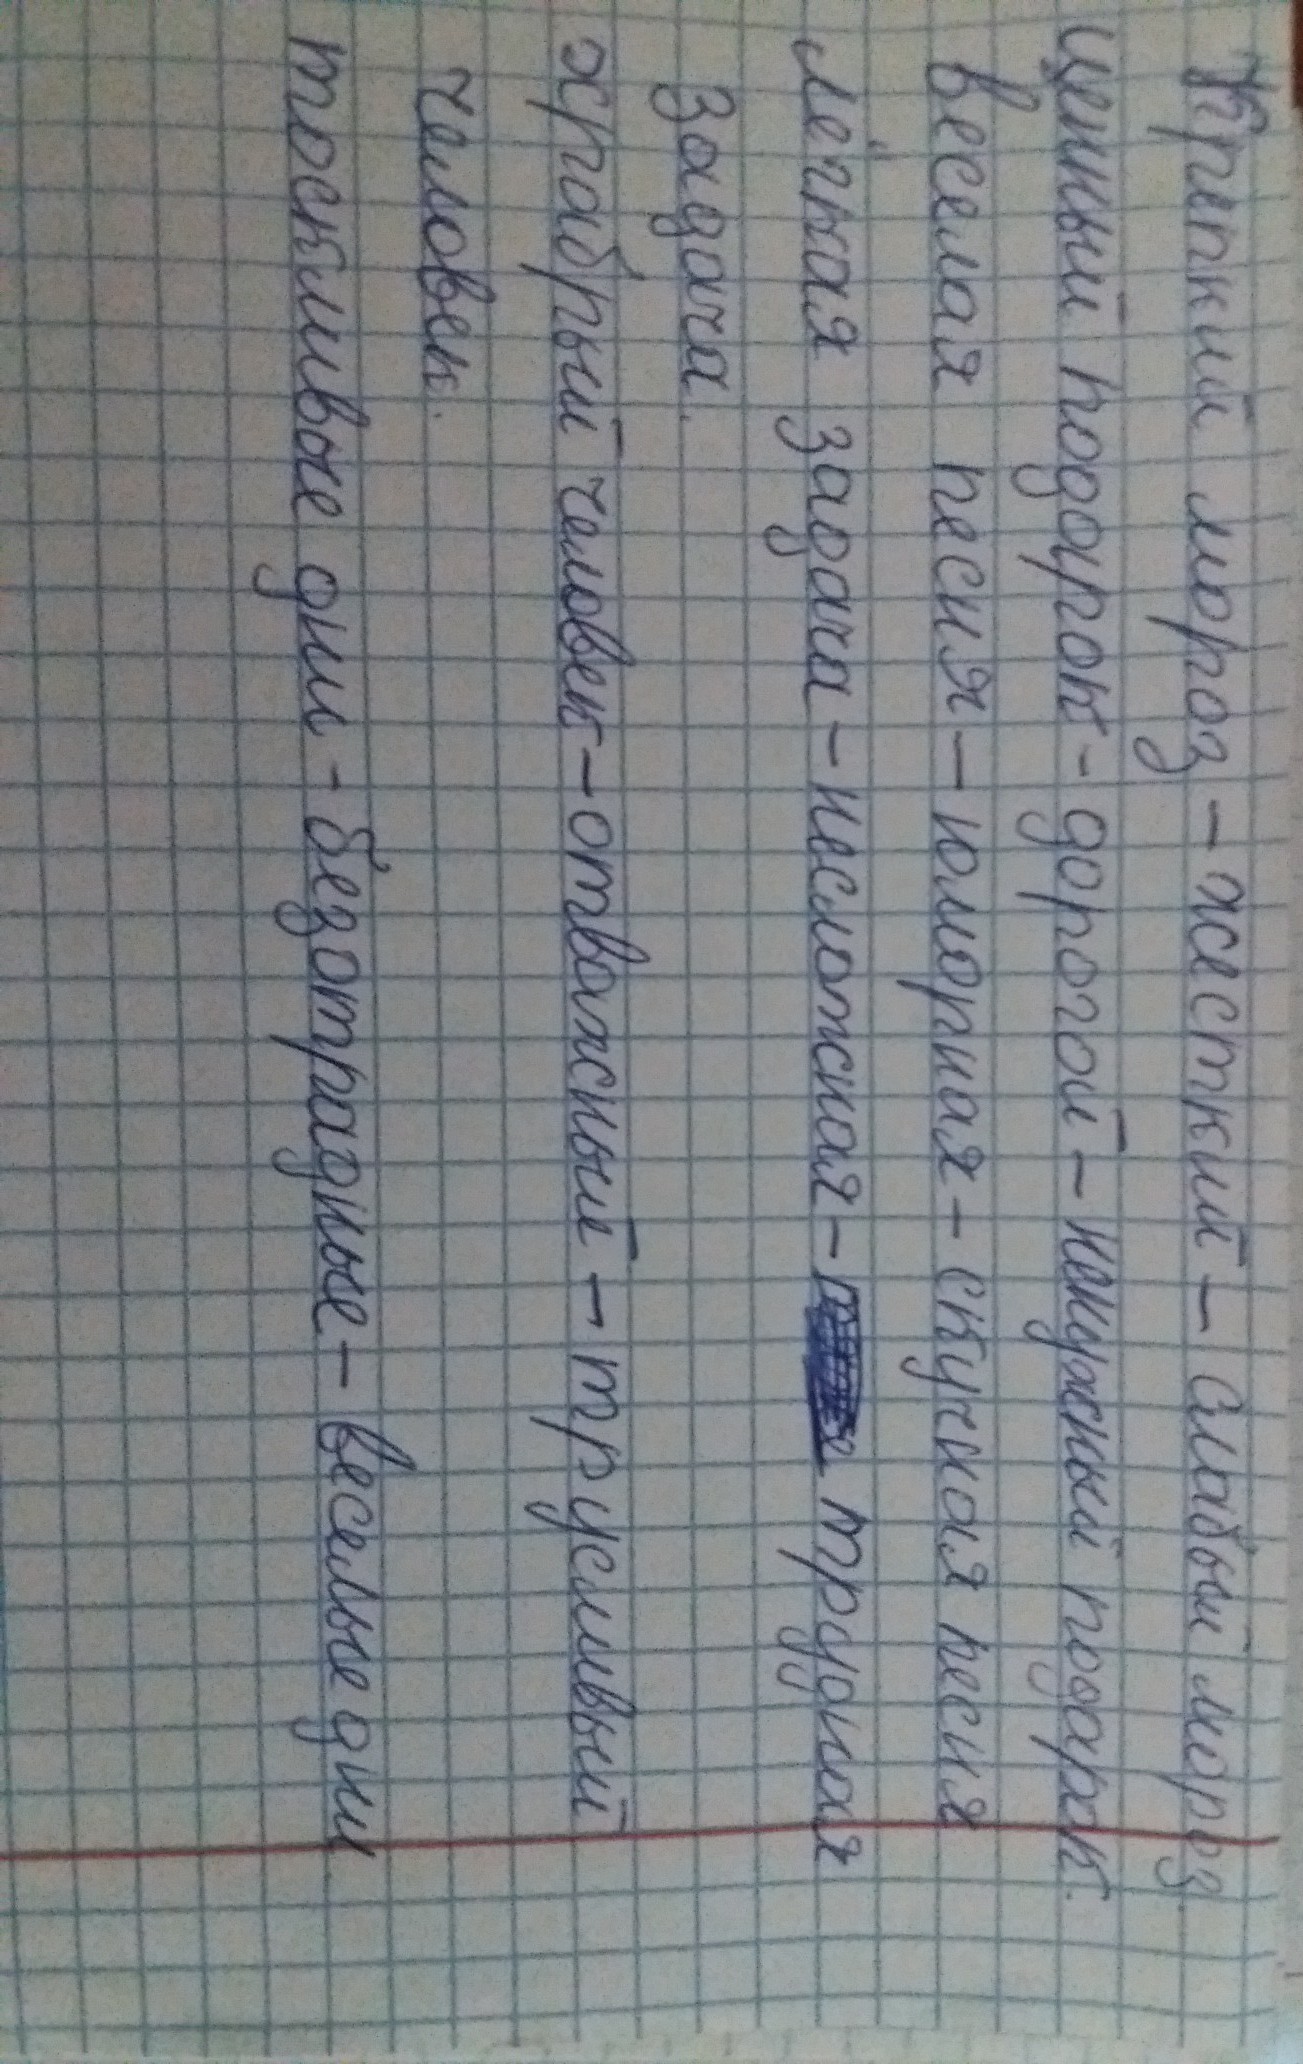 Крепкий мороз – жесткий – слабый мороз.
Ценный подарок - дорогой - ненужный подарок.
Веселая песня – юморная – скучная песня
лёгкая задача – несложная – трудная
задача.
храбрый человек – отважный – трусливый
человек.
тоскливые дни - безотрадные – веселые дни.